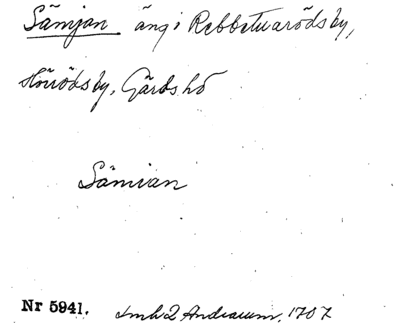 Sämjan äng i Rebbetuarödsby,
Hörrödsby, Gärds hd
Sämian
Nr 5941. Lmh 2 Andrarum, 1707